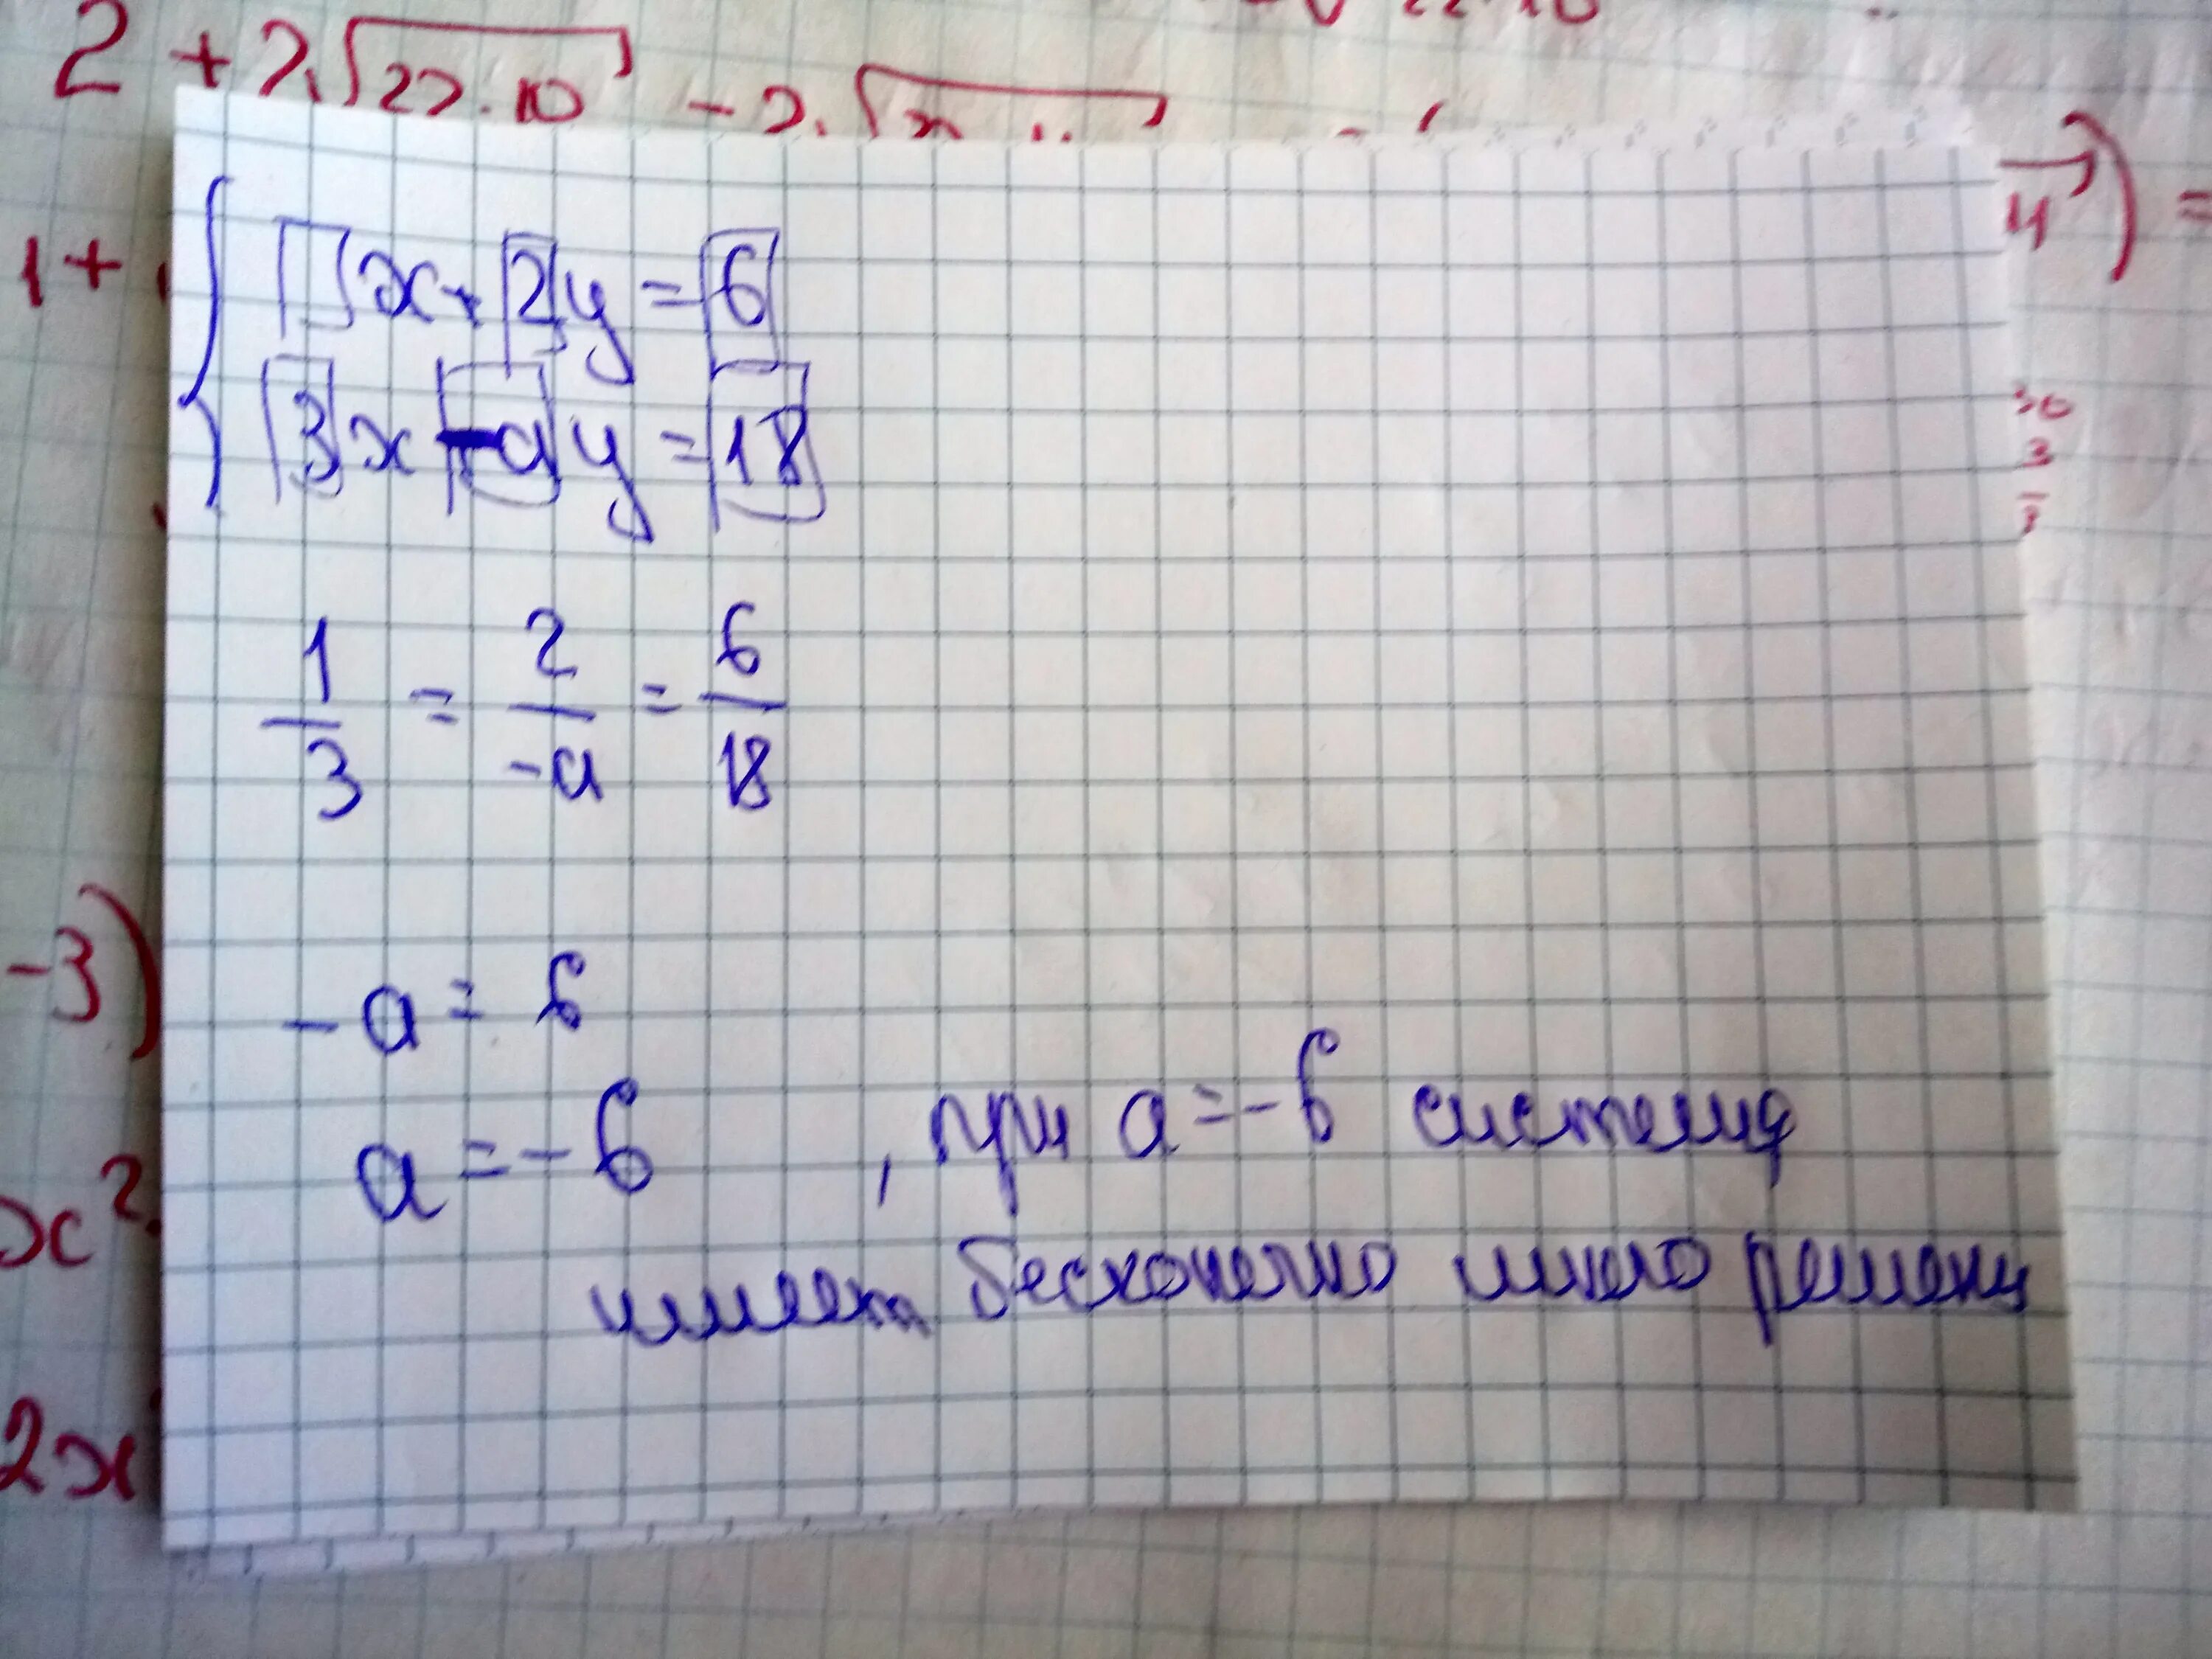 2 + 2√22·10 - 2·√
1 +
x + 2y = 6
3x - ay = 18
1/3 = 2/-a = 6/18
-3)
-a = 6
a = -6 , при a = -6 система
имеет бесконечно много решени
x²
2x